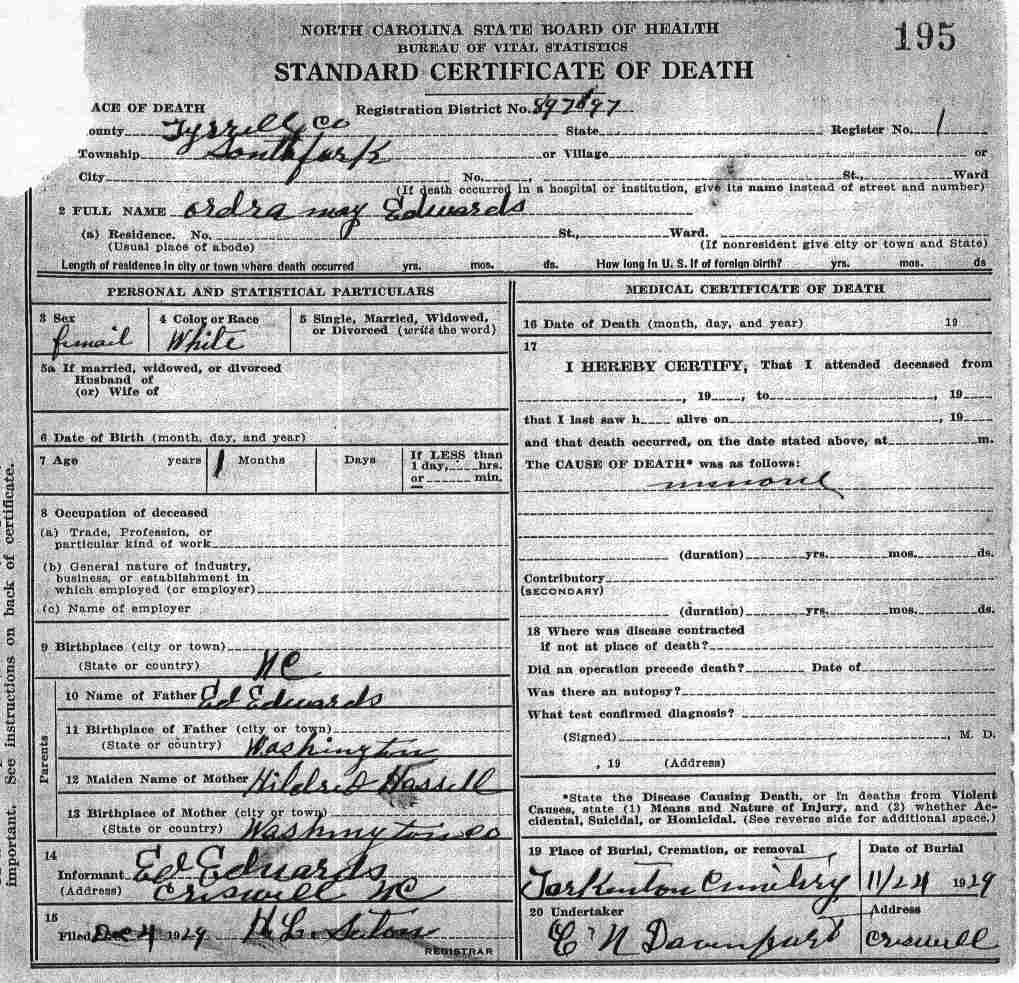 NORTH CAROLINA STATE BOARD OF HEALTH
BUREAU OF VITAL STATISTICS
195
STANDARD CERTIFICATE OF DEATH
ACE OF DEATH Registration District No.
ounty Tyrrell Co State Register No. 1
Township Southfork or Village or
City No. St., Ward
(If death occurred in a hospital or institution, give its name instead of street and number)
2 FULL NAME ordra may Edwards
(a) Residence. No. St., Ward.
(Usual place of abode) (If nonresident give city or town and State)
Length of residence in city or town where death occurred yrs. mos. ds. How long in U. S. if of foreign birth? yrs. mos. ds
PERSONAL AND STATISTICAL PARTICULARS
3 Sex 4 Color or Race 5 Single, Married, Widowed,
or Divorced (write the word)
femail White
5a If married, widowed, or divorced
Husband of
(or) Wife of
6 Date of Birth (month, day, and year)
7 Age years 1 Months Days If LESS than
1 day, hrs.
or min.
8 Occupation of deceased
(a) Trade, Profession, or
particular kind of work
(b) General nature of industry,
business, or establishment in
which employed (or employer)
(c) Name of employer
9 Birthplace (city or town)
(State or country) NC
Parents
10 Name of Father Ed Edwards
11 Birthplace of Father (city or town)
(State or country) Washington
12 Maiden Name of Mother Hildred Hassell
13 Birthplace of Mother (city or town)
(State or country) Washington co
14
Informant Ed Edwards
(Address) Criswell NC
15
Filed Dec 4 1929 H. L.
REGISTRAR
MEDICAL CERTIFICATE OF DEATH
16 Date of Death (month, day, and year) 19
17
I HEREBY CERTIFY, That I attended deceased from
, 19 , to , 19
that I last saw h alive on , 19
and that death occurred, on the date stated above, at m.
The CAUSE OF DEATH* was as follows:
(duration) yrs. mos. ds.
Contributory
(SECONDARY)
(duration) yrs. mos. ds.
18 Where was disease contracted
if not at place of death?
Did an operation precede death? Date of
Was there an autopsy?
What test confirmed diagnosis?
(Signed) , M. D.
, 19 (Address)
*State the Disease Causing Death, or in deaths from Violent
Causes, state (1) Means and Nature of Injury, and (2) whether Ac-
cidental, Suicidal, or Homicidal. (See reverse side for additional space.)
19 Place of Burial, Cremation, or removal Date of Burial
Tarkenton Cemitery 11/24 1929
20 Undertaker Address
C N Davenport Criswell
important. See instructions on back of certificate.